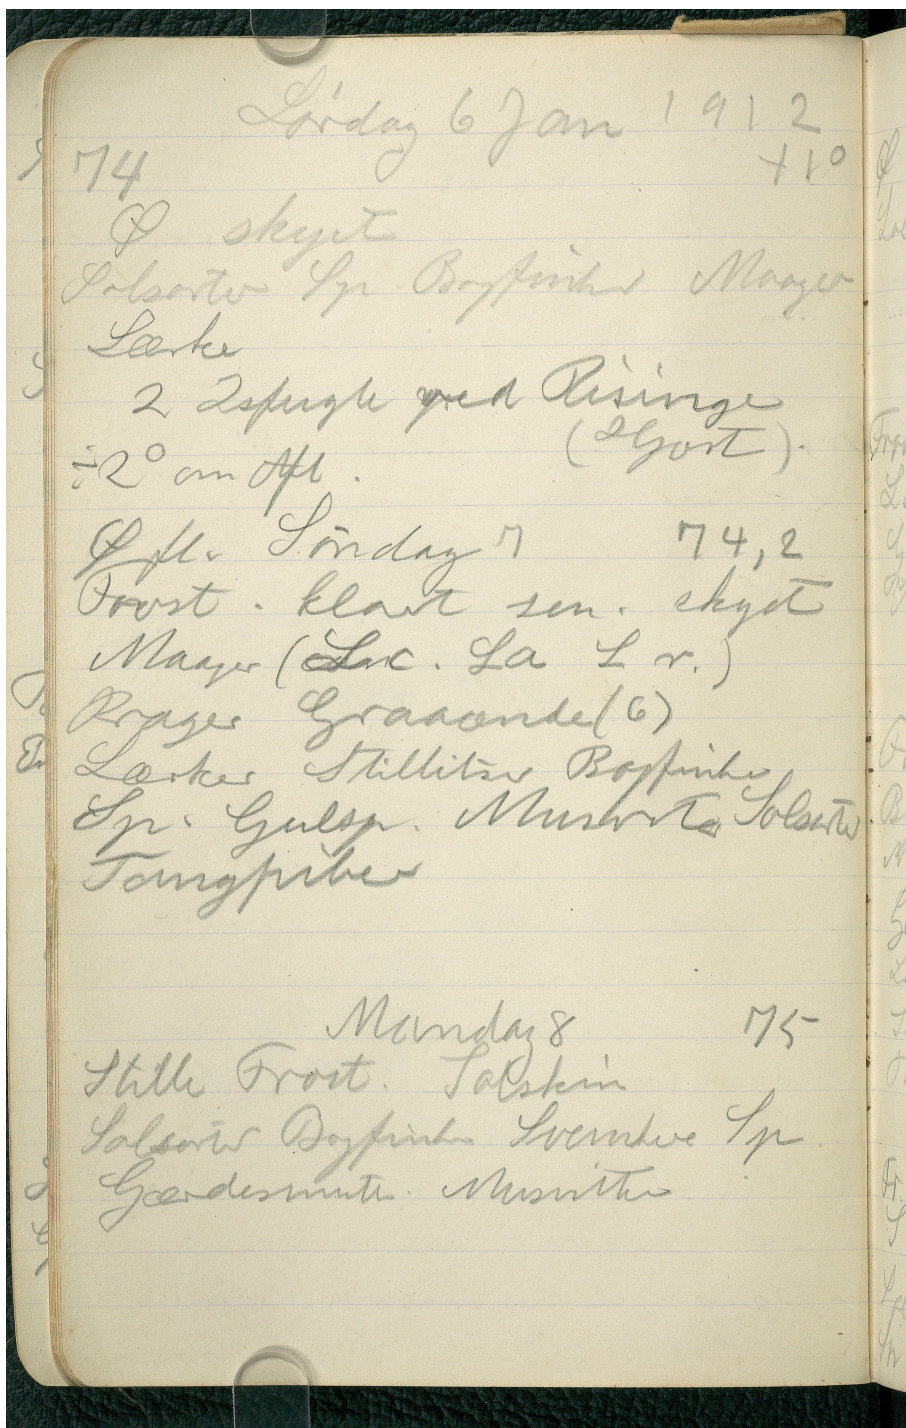 Lördag 6 Jan 1912
74 +1°
Ø skyet
Solsorter Sp Bogfinker Maager
Lærke
2 Isfugle ved Risinge
÷2° om Aft. (Hjort).
Ø fl. Söndag 7 74,2
Frost. klart sen. skyet
Maager (L. c. La L r.)
Krager Graaænder (6)
Lærker Stillitser Bogfinke
Sp. Gulsp. Musvitte Solsorter
Tangpiber
Mandag 8 75
Stille Frost. Solskin
Solsorter Bogfinke Svenske Sp
Gærdesmutte. Musvitter